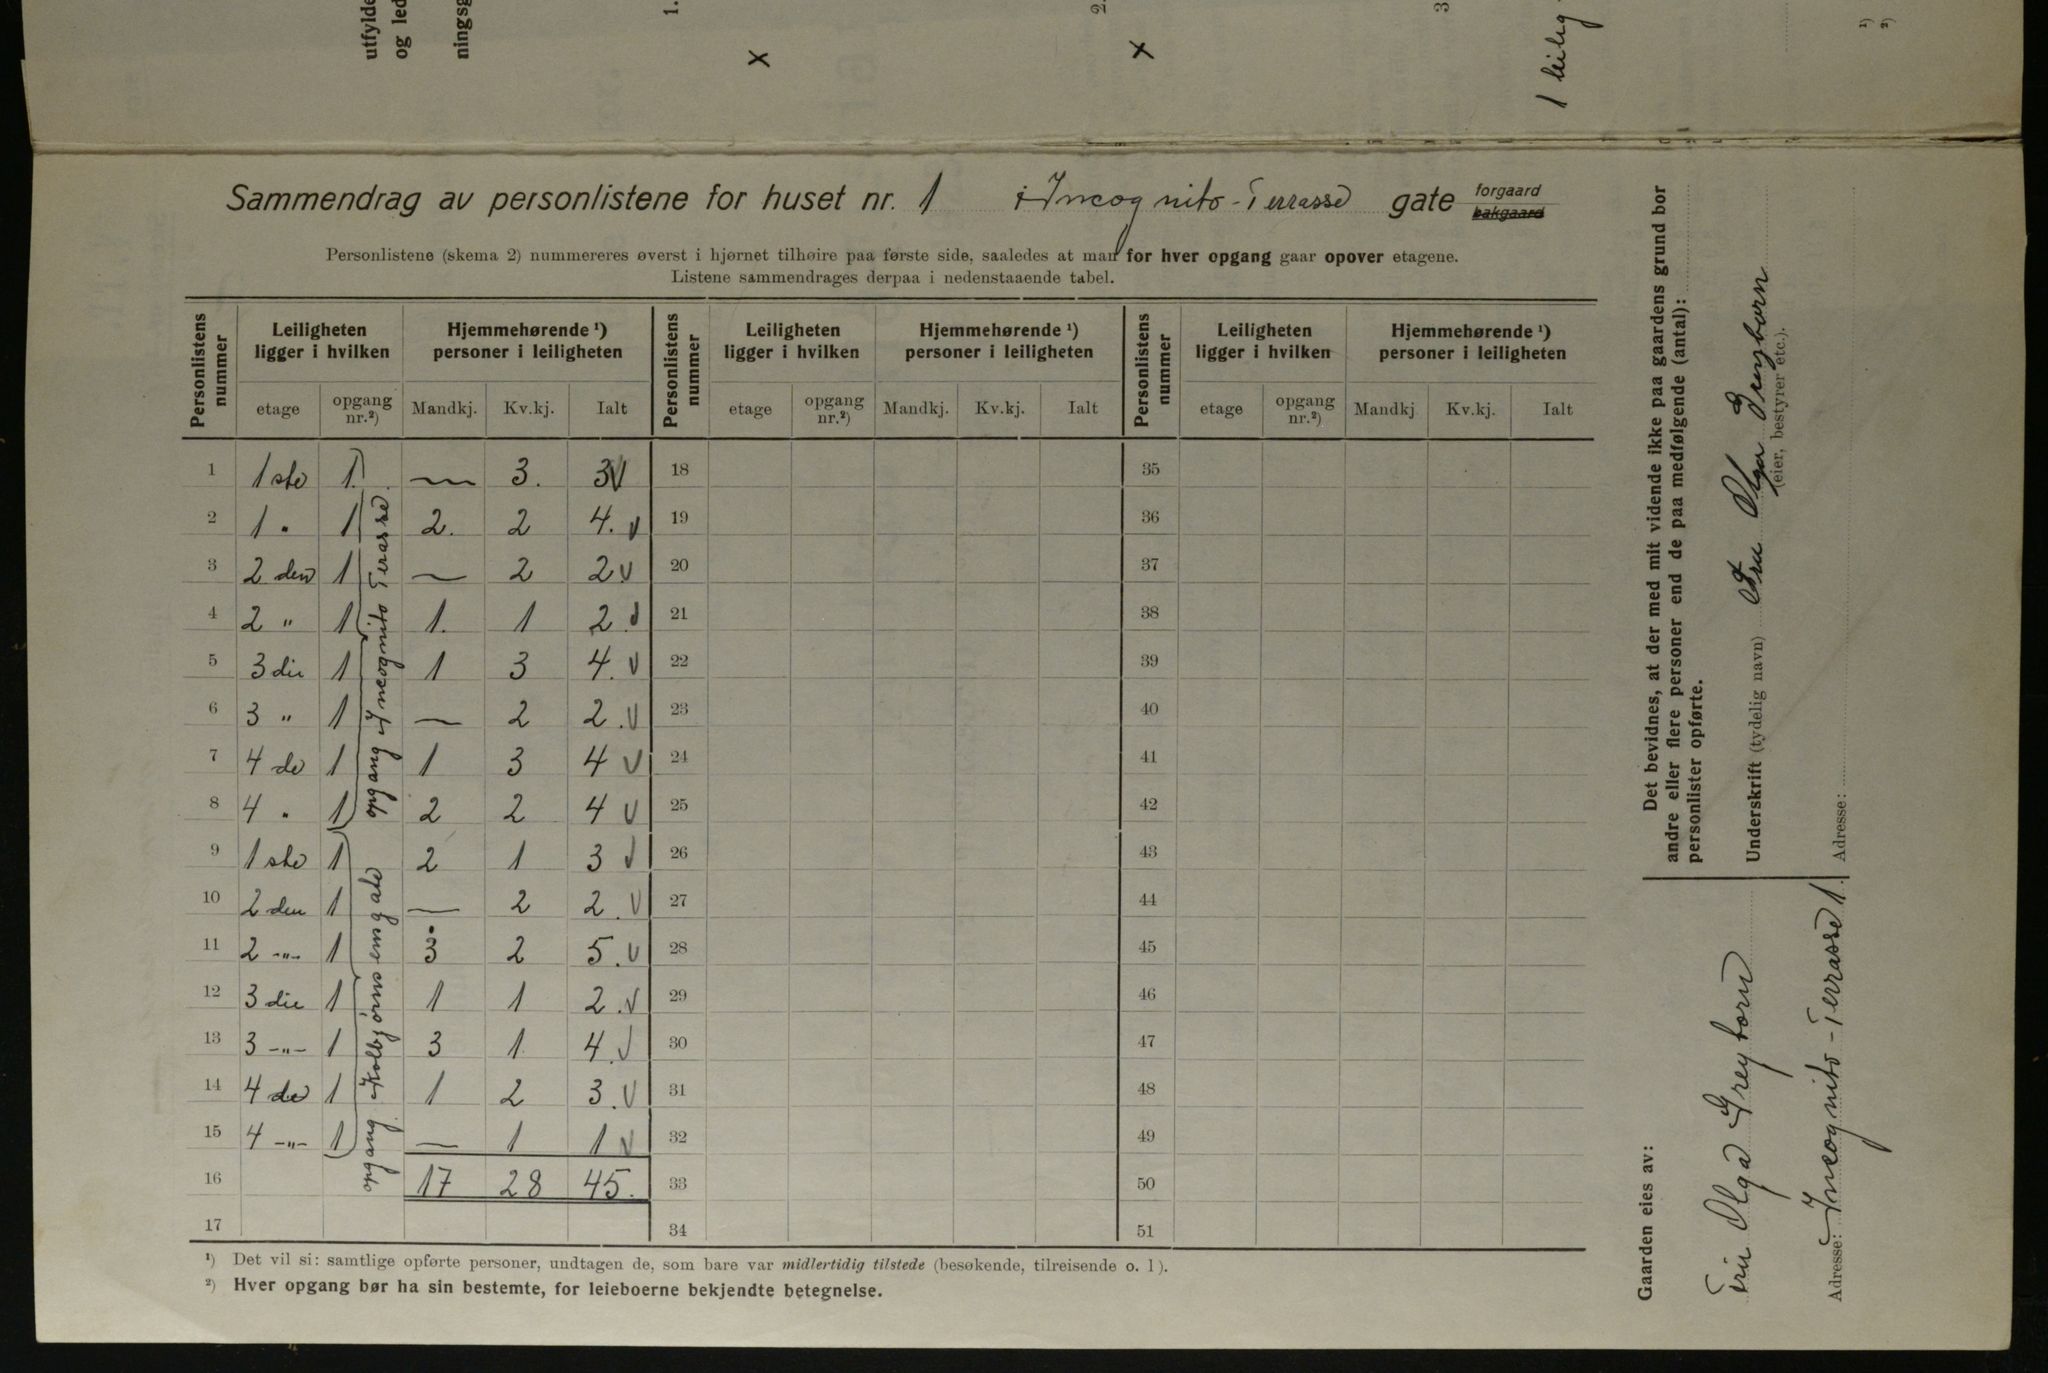 utfylde
og led
ningsg
1.
2.
3
x
x
1 leilig
¹)
²)
Sammendrag av personlistene for huset nr. 1 i Incognito-Terrasse gate forgaard bakgaard
Personlistene (skema 2) nummereres øverst i hjørnet tilhøire paa første side, saaledes at man for hver opgang gaar opover etagene.
Listene sammendrages derpaa i nedenstaaende tabel.
Personlistens nummer | Leiligheten ligger i hvilken | Hjemmehørende ¹) personer i leiligheten | Personlistens nummer | Leiligheten ligger i hvilken | Hjemmehørende ¹) personer i leiligheten | Personlistens nummer | Leiligheten ligger i hvilken | Hjemmehørende ¹) personer i leiligheten
etage | opgang nr.²) | Mandkj. | Kv.kj. | Ialt | etage | opgang nr.²) | Mandkj. | Kv.kj. | Ialt | etage | opgang nr.²) | Mandkj | Kv.kj. | Ialt
1 | 1ste | 1. | — | 3. | 3 V | 18 | 35
2 | 1 " | 1 | 2. | 2 | 4. V | 19 | 36
3 | 2 den | 1 | — | 2 | 2 V | 20 | 37
4 | 2 " | 1 | 1. | 1 | 2 V | 21 | 38
5 | 3 die | 1 | 1 | 3 | 4. V | 22 | 39
6 | 3 " | 1 | — | 2 | 2. V | 23 | 40
7 | 4 de | 1 | 1 | 3 | 4 V | 24 | 41
8 | 4 " | 1 | 2 | 2 | 4 V | 25 | 42
opgang Incognito Terasse
9 | 1 ste | 1 | 2 | 1 | 3 V | 26 | 43
10 | 2 den | 1 | — | 2 | 2. V | 27 | 44
11 | 2 -"- | 1 | 3 | 2 | 5. V | 28 | 45
12 | 3 die | 1 | 1 | 1 | 2. V | 29 | 46
13 | 3 -"- | 1 | 3 | 1 | 4. V | 30 | 47
14 | 4 de | 1 | 1 | 2 | 3. V | 31 | 48
15 | 4 -"- | 1 | — | 1 | 1 V | 32 | 49
opgang Kolbjørnsensgate
16 | 17 | 28 | 45. | 33 | 50
17 | 34 | 51
¹) Det vil si: samtlige opførte personer, undtagen de, som bare var midlertidig tilstede (besøkende, tilreisende o. l).
²) Hver opgang bør ha sin bestemte, for leieboerne bekjendte betegnelse.
Gaarden eies av:
Fru Olga Greyborn
Adresse: Incognito-Terrasse 1.
Det bevidnes, at der med mit vidende ikke paa gaardens grund bor
andre eller flere personer end de paa medfølgende (antal):
personlister opførte.
Underskrift (tydelig navn) Fru Olga Greyborn
(eier, bestyrer etc.).
Adresse: